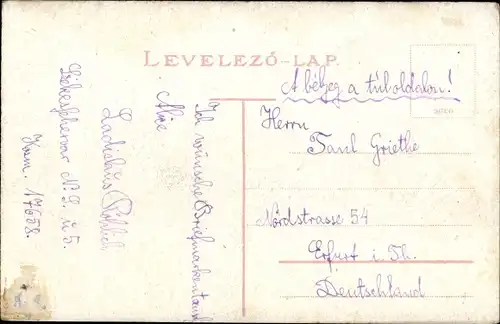 LEVELEZŐ-LAP.
A bélyeg a túloldalon!
Herrn
Paul Griethe
Nordstrasse 54
Erfurt i. Th.
Deutschland
Ich wünsche Briefmarkentausch
Ladislaus
Székesfehérvár N. 9. u 5.
17658.